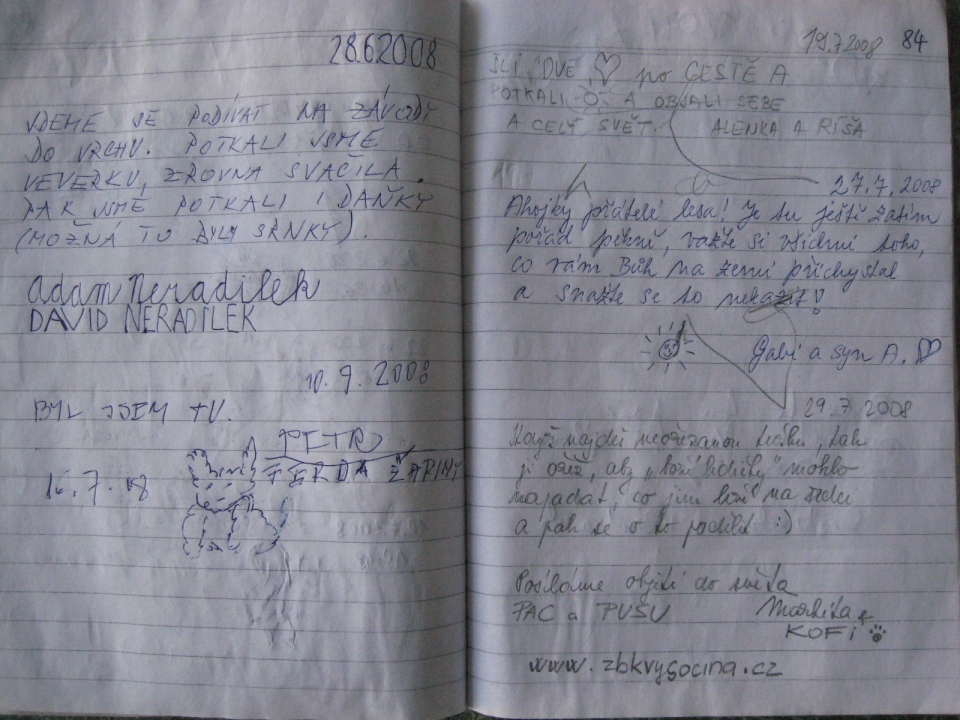 28.6.2008
JDEME SE PODÍVAT NA ZÁVODY
DO VRCHU. POTKALI JSME
VEVERKU, ZROVNA SVAČILA.
PAK JSME POTKALI I DAŇKY
(MOŽNÁ TO BYLY SRNKY).
Adam Neradilek
DAVID NERADILEK
10. 9. 2008
BYL JSEM TU.
PETR
16.7.08
FERDA
19.7.2008 84
ŠLI DVĚ ♡ po CESTĚ A
POTKALI A OBJALI SEBE
A CELÝ SVĚT. ALENKA A RÍŠA
27.7.2008
Ahojky přátelé lesa! Je tu ještě zatím
pořád pěkně, važte si všichni toho,
co vám Bůh na zemi přichystal
a snažte se to nekazit!
Gabi a syn A. ♡
29.7.2008
Když najdeš neořezanou tužku, tak
ji ořež, aby „boží lidičky" mohlo
napadat, co jim leží na srdci
a pak se o to podělit :)
Posíláme objetí do světa
PAC a PUSU
Markéta &
KOFI
www.zbkvysocina.cz